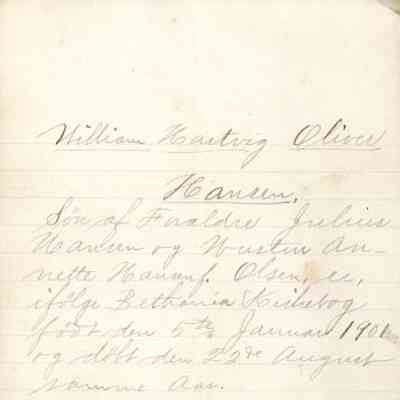 William Hartvig Oliver
Hansen,
Søn af Foraldre Julius
Hansen og Hustru An-
nette Hansen f. Olsen, er,
ifølge Bethania Kirkebog
født den 5te Januar 1901
og døbt den 22de August
samme Aar.